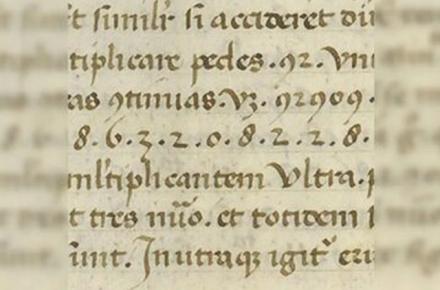 t similr si accideret
tiplicare pedes . 92 . vni
as 9tinuas. vz . 92909 .
8 . 6 . 3 . 2 . 0 . 8 . 2 . 2 . 8 .
mltiplicantem Vltra .
t tres nũo . et totidem
unt . In utraq igit̃ eri